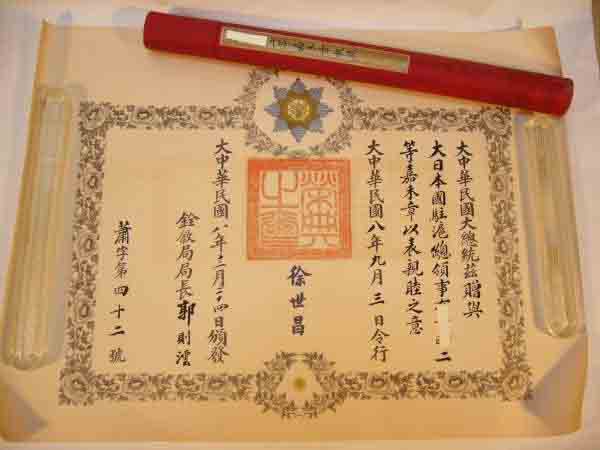 大中華民國大總統茲贈與
大日本國駐滬總領事 二
等嘉禾章以表親睦之意
大中華民國八年九月三日令行
榮典之璽
徐世昌
大中華民國八年 月 四日頒發
銓敘局局長郭則澐
蕭字第四十二號